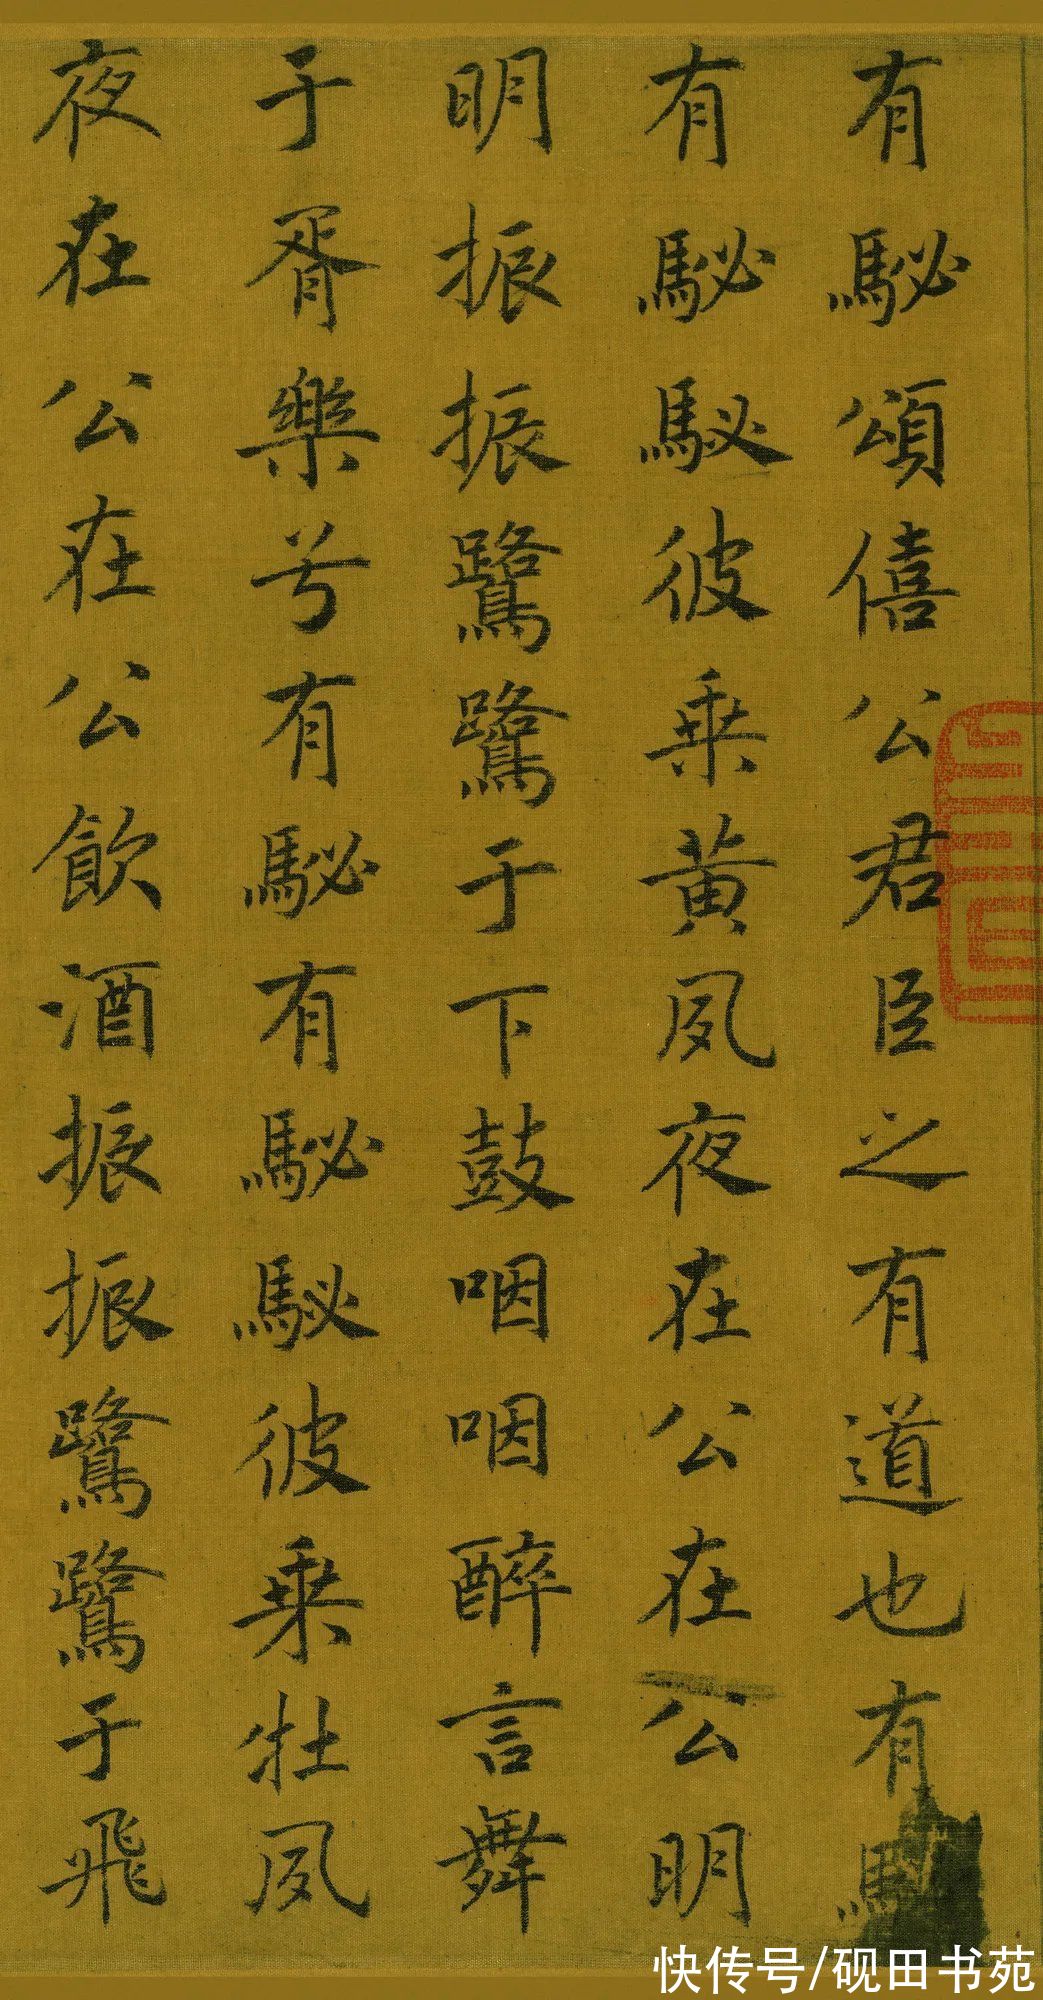 有駜頌僖公君臣之有道也有
有駜駜彼乗黃夙夜在公在公明
明振振鷺鷺于下鼓咽咽醉言舞
于胥樂兮有駜有駜駜彼乗牡夙
夜在公在公飲酒振振鷺鷺于飛
快传号/砚田书苑